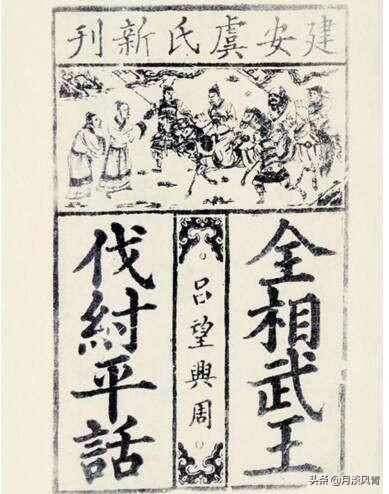 建安虞氏新刊
全相武王
呂望興周
伐紂平話
头条